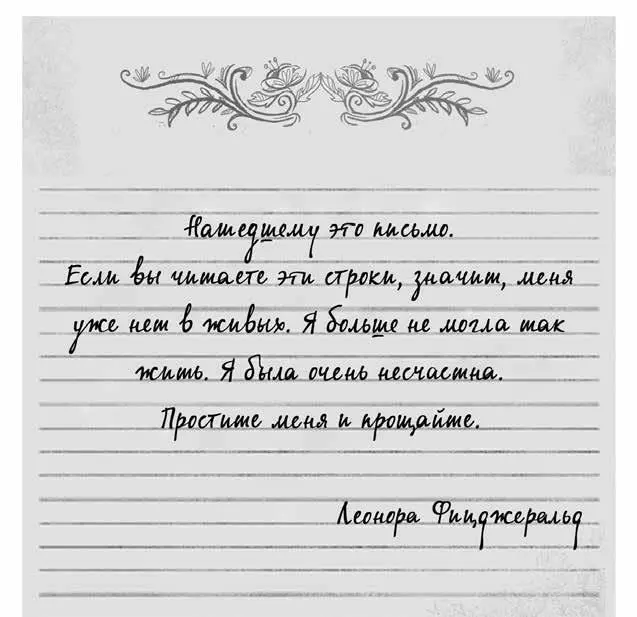 Нашедшему это письмо.
Если вы читаете эти строки, значит, меня
уже нет в живых. Я больше не могла так
жить. Я была очень несчастна.
Простите меня и прощайте.
Леонора Фицджеральд